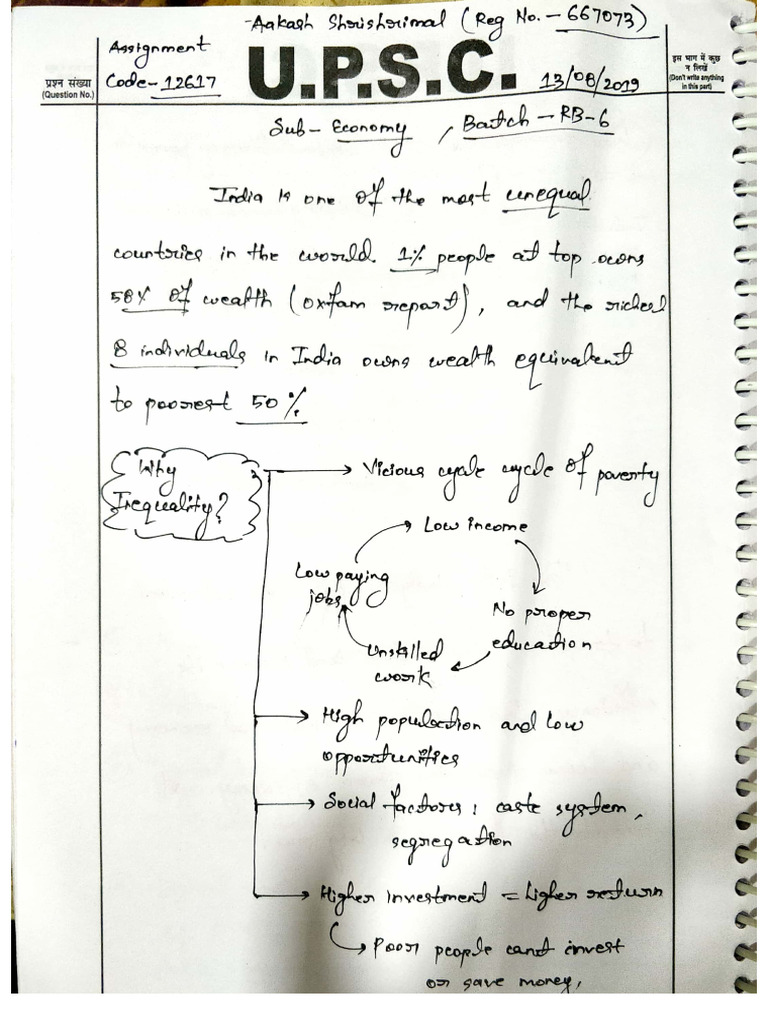 Aakash Shrishrimal (Reg No. - 667073)
Assignment
Code - 12617
U.P.S.C.
13/08/2019
प्रश्न संख्या
(Question No.)
इस भाग में कुछ
न लिखें
(Don't write anything
in this part)
Sub - Economy, Batch - RB-6
India is one of the most unequal
countries in the world. 1% people at top owns
58% of wealth (oxfam report), and the richest
8 individuals in India owns wealth equivalent
to poorest 50%.
Why
Inequality?
→ Vicious cycle cycle of poverty
Low income
Low paying
jobs
No proper
education
Unskilled
work
→ High population and low
opportunities
→ Social factors: caste system,
segregation
→ Higher investment = higher return
→ Poor people cant invest
or save money,